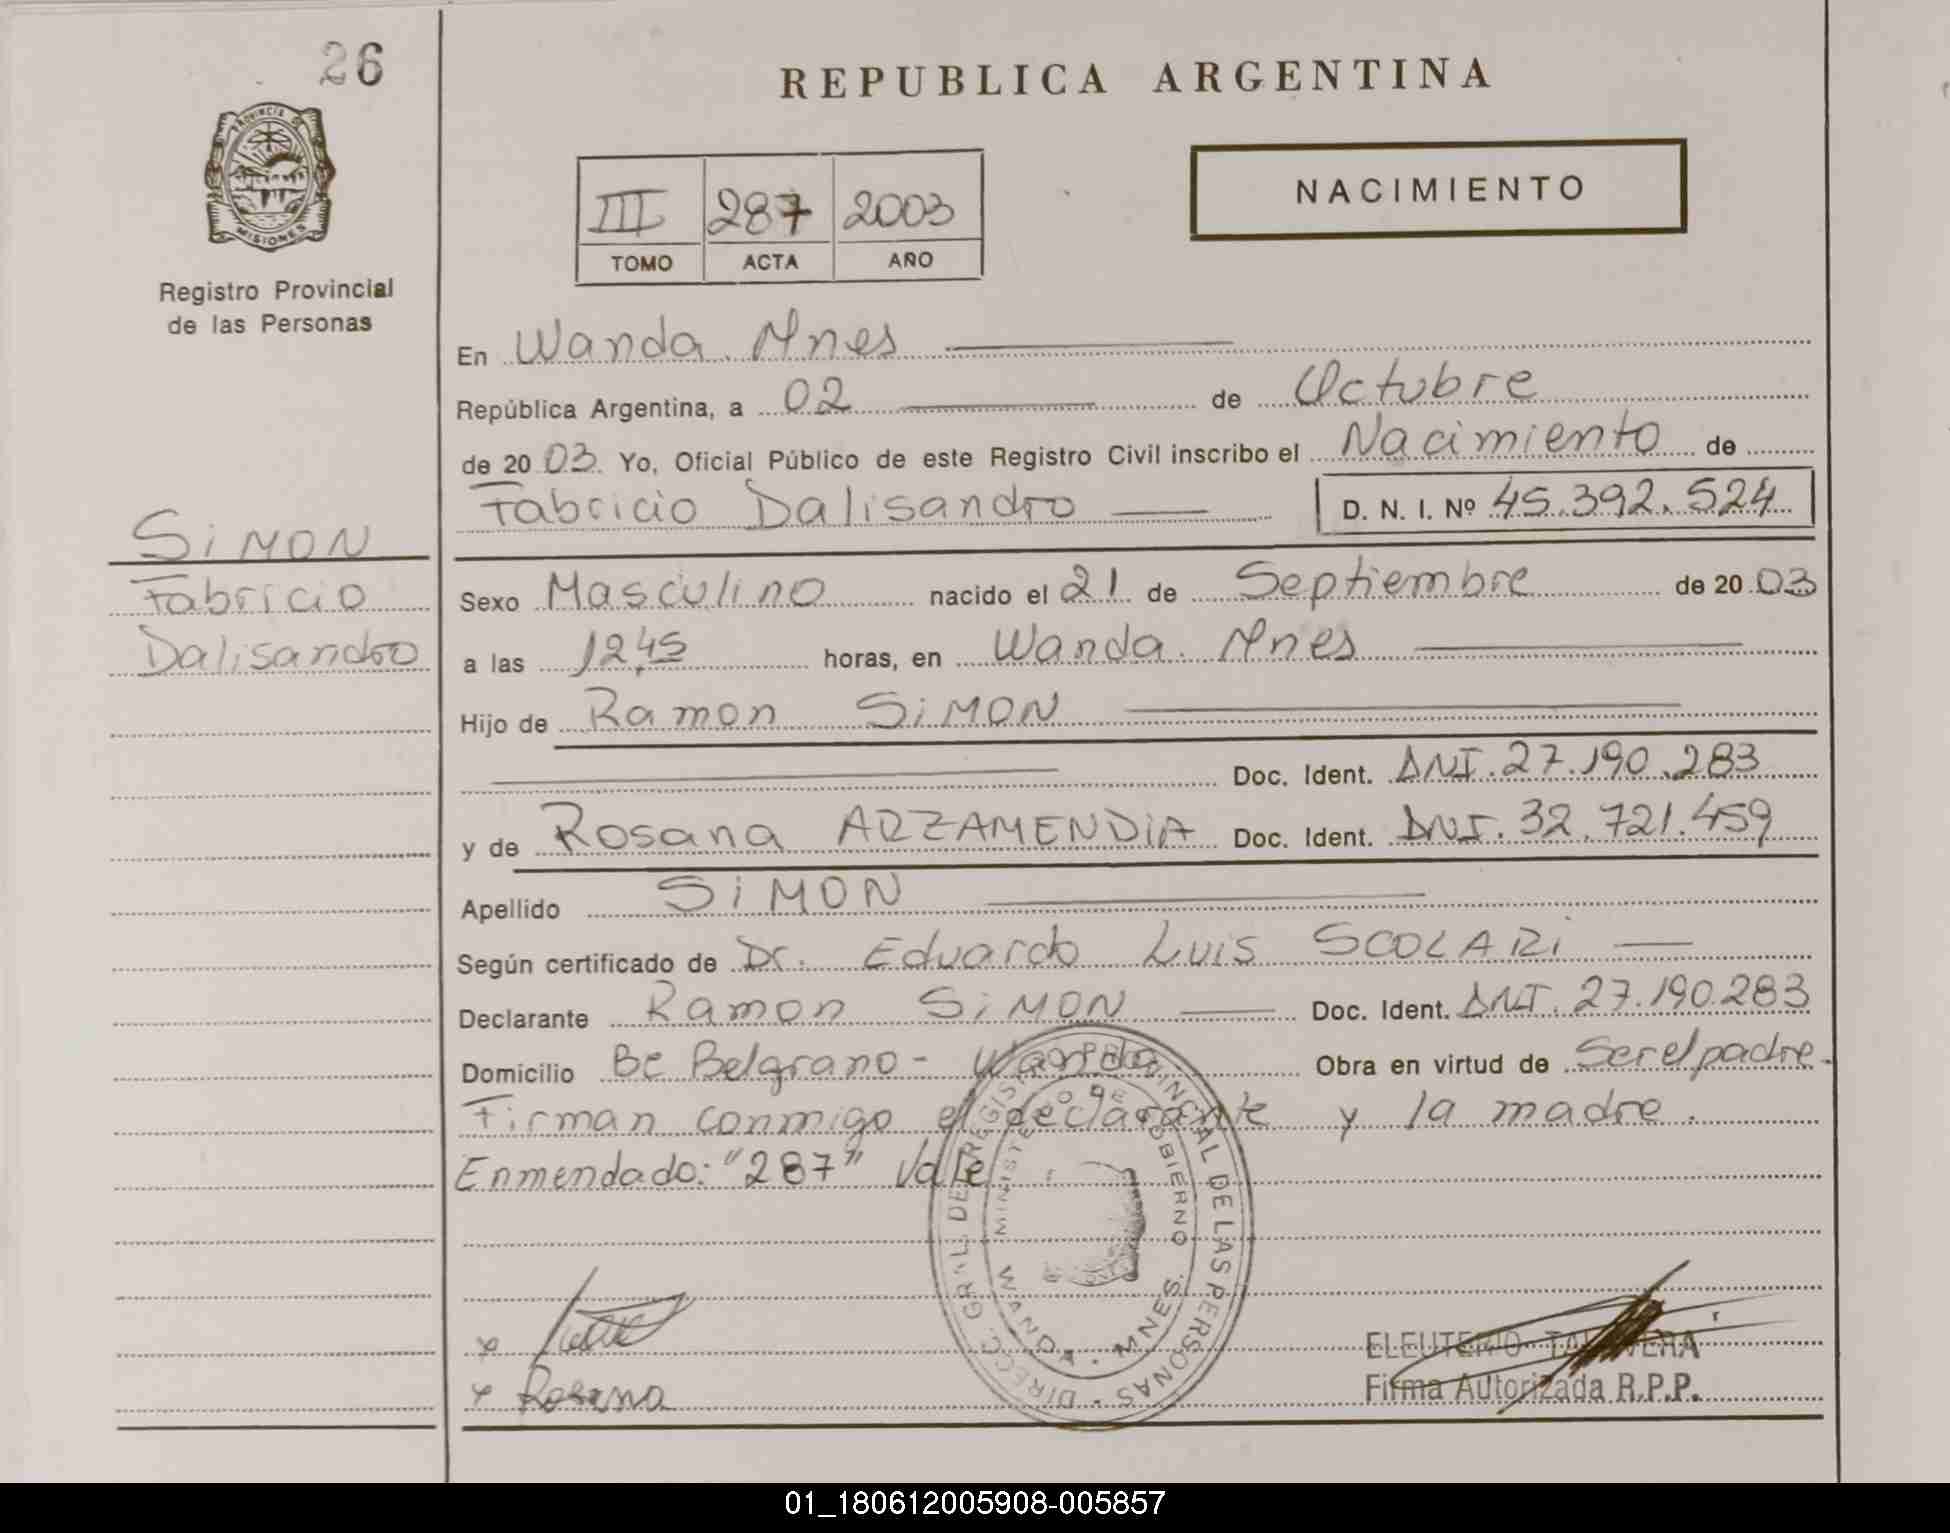 26
REPUBLICA ARGENTINA
PROVINCIA DE
MISIONES
Registro Provincial
de las Personas
III 287 2003
TOMO ACTA AÑO
NACIMIENTO
En Wanda Mnes
República Argentina, a 02 de Octubre
de 20 03. Yo, Oficial Público de este Registro Civil inscribo el Nacimiento de
Fabricio Dalisandro D. N. I. Nº 45.392.524
SiMON
Fabricio
Dalisandro
Sexo Masculino nacido el 21 de Septiembre de 20 03
a las 12,45 horas, en Wanda. Mnes
Hijo de Ramon SiMON
Doc. Ident. DNI. 27.190.283
y de Rosana ARZAMENDiA Doc. Ident. DNI. 32.721.459
Apellido SiMON
Según certificado de Dr. Eduardo Luis SCOLARi
Declarante Ramon SiMON Doc. Ident. DNI. 27.190.283
Domicilio Bº Belgrano - Wanda Obra en virtud de Ser el padre.
Firman conmigo el declarante y la madre.
Enmendado: "287" Vale
DIRECC. GRAL. DE REGISTRO PROVINCIAL DE LAS PERSONAS
MINISTERIO DE GOBIERNO
WANDA - MNES.
x
x Rosana
ELEUTERIO TALAVERA
Firma Autorizada R.P.P.
01_180612005908-005857